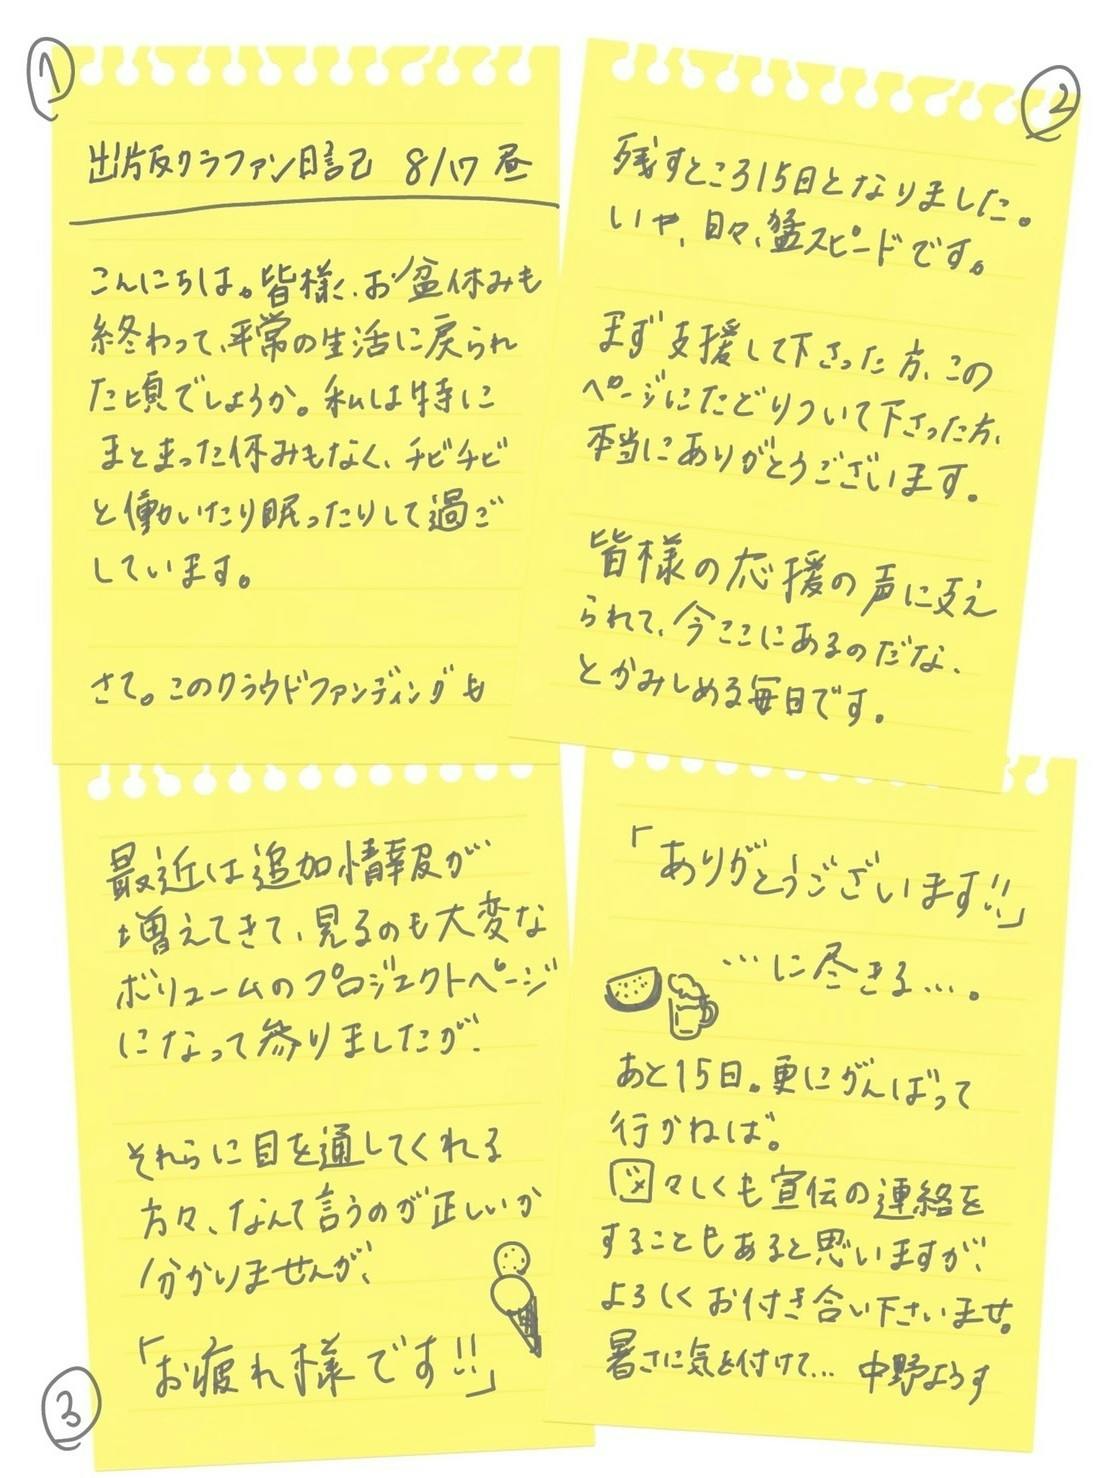 1
出版クラファン日記 8/17 昼
こんにちは。皆様、お盆休みも
終わって、平常の生活に戻られ
た頃でしょうか。私は特に
まとまった休みもなく、チビチビ
と働いたり眠ったりして過ご
しています。
さて。このクラウドファンディングも
2
残すところ15日となりました。
いや、日々、猛スピードです。
まず支援して下さった方、この
ページにたどりついて下さった方、
本当にありがとうございます。
皆様の応援の声に支え
られて、今ここにあるのだな、
とかみしめる毎日です。
3
最近は追加情報が
増えてきて、見るのも大変な
ボリュームのプロジェクトページ
になって参りましたが、
それらに目を通してくれる
方々、なんて言うのが正しいか
分かりませんが、
「お疲れ様です!!」
「ありがとうございます!!」
…に尽きる…。
あと15日。更にがんばって
行かねば。
図々しくも宣伝の連絡を
することもあると思いますが、
よろしくお付き合い下さいませ。
暑さに気を付けて… 中野ようす